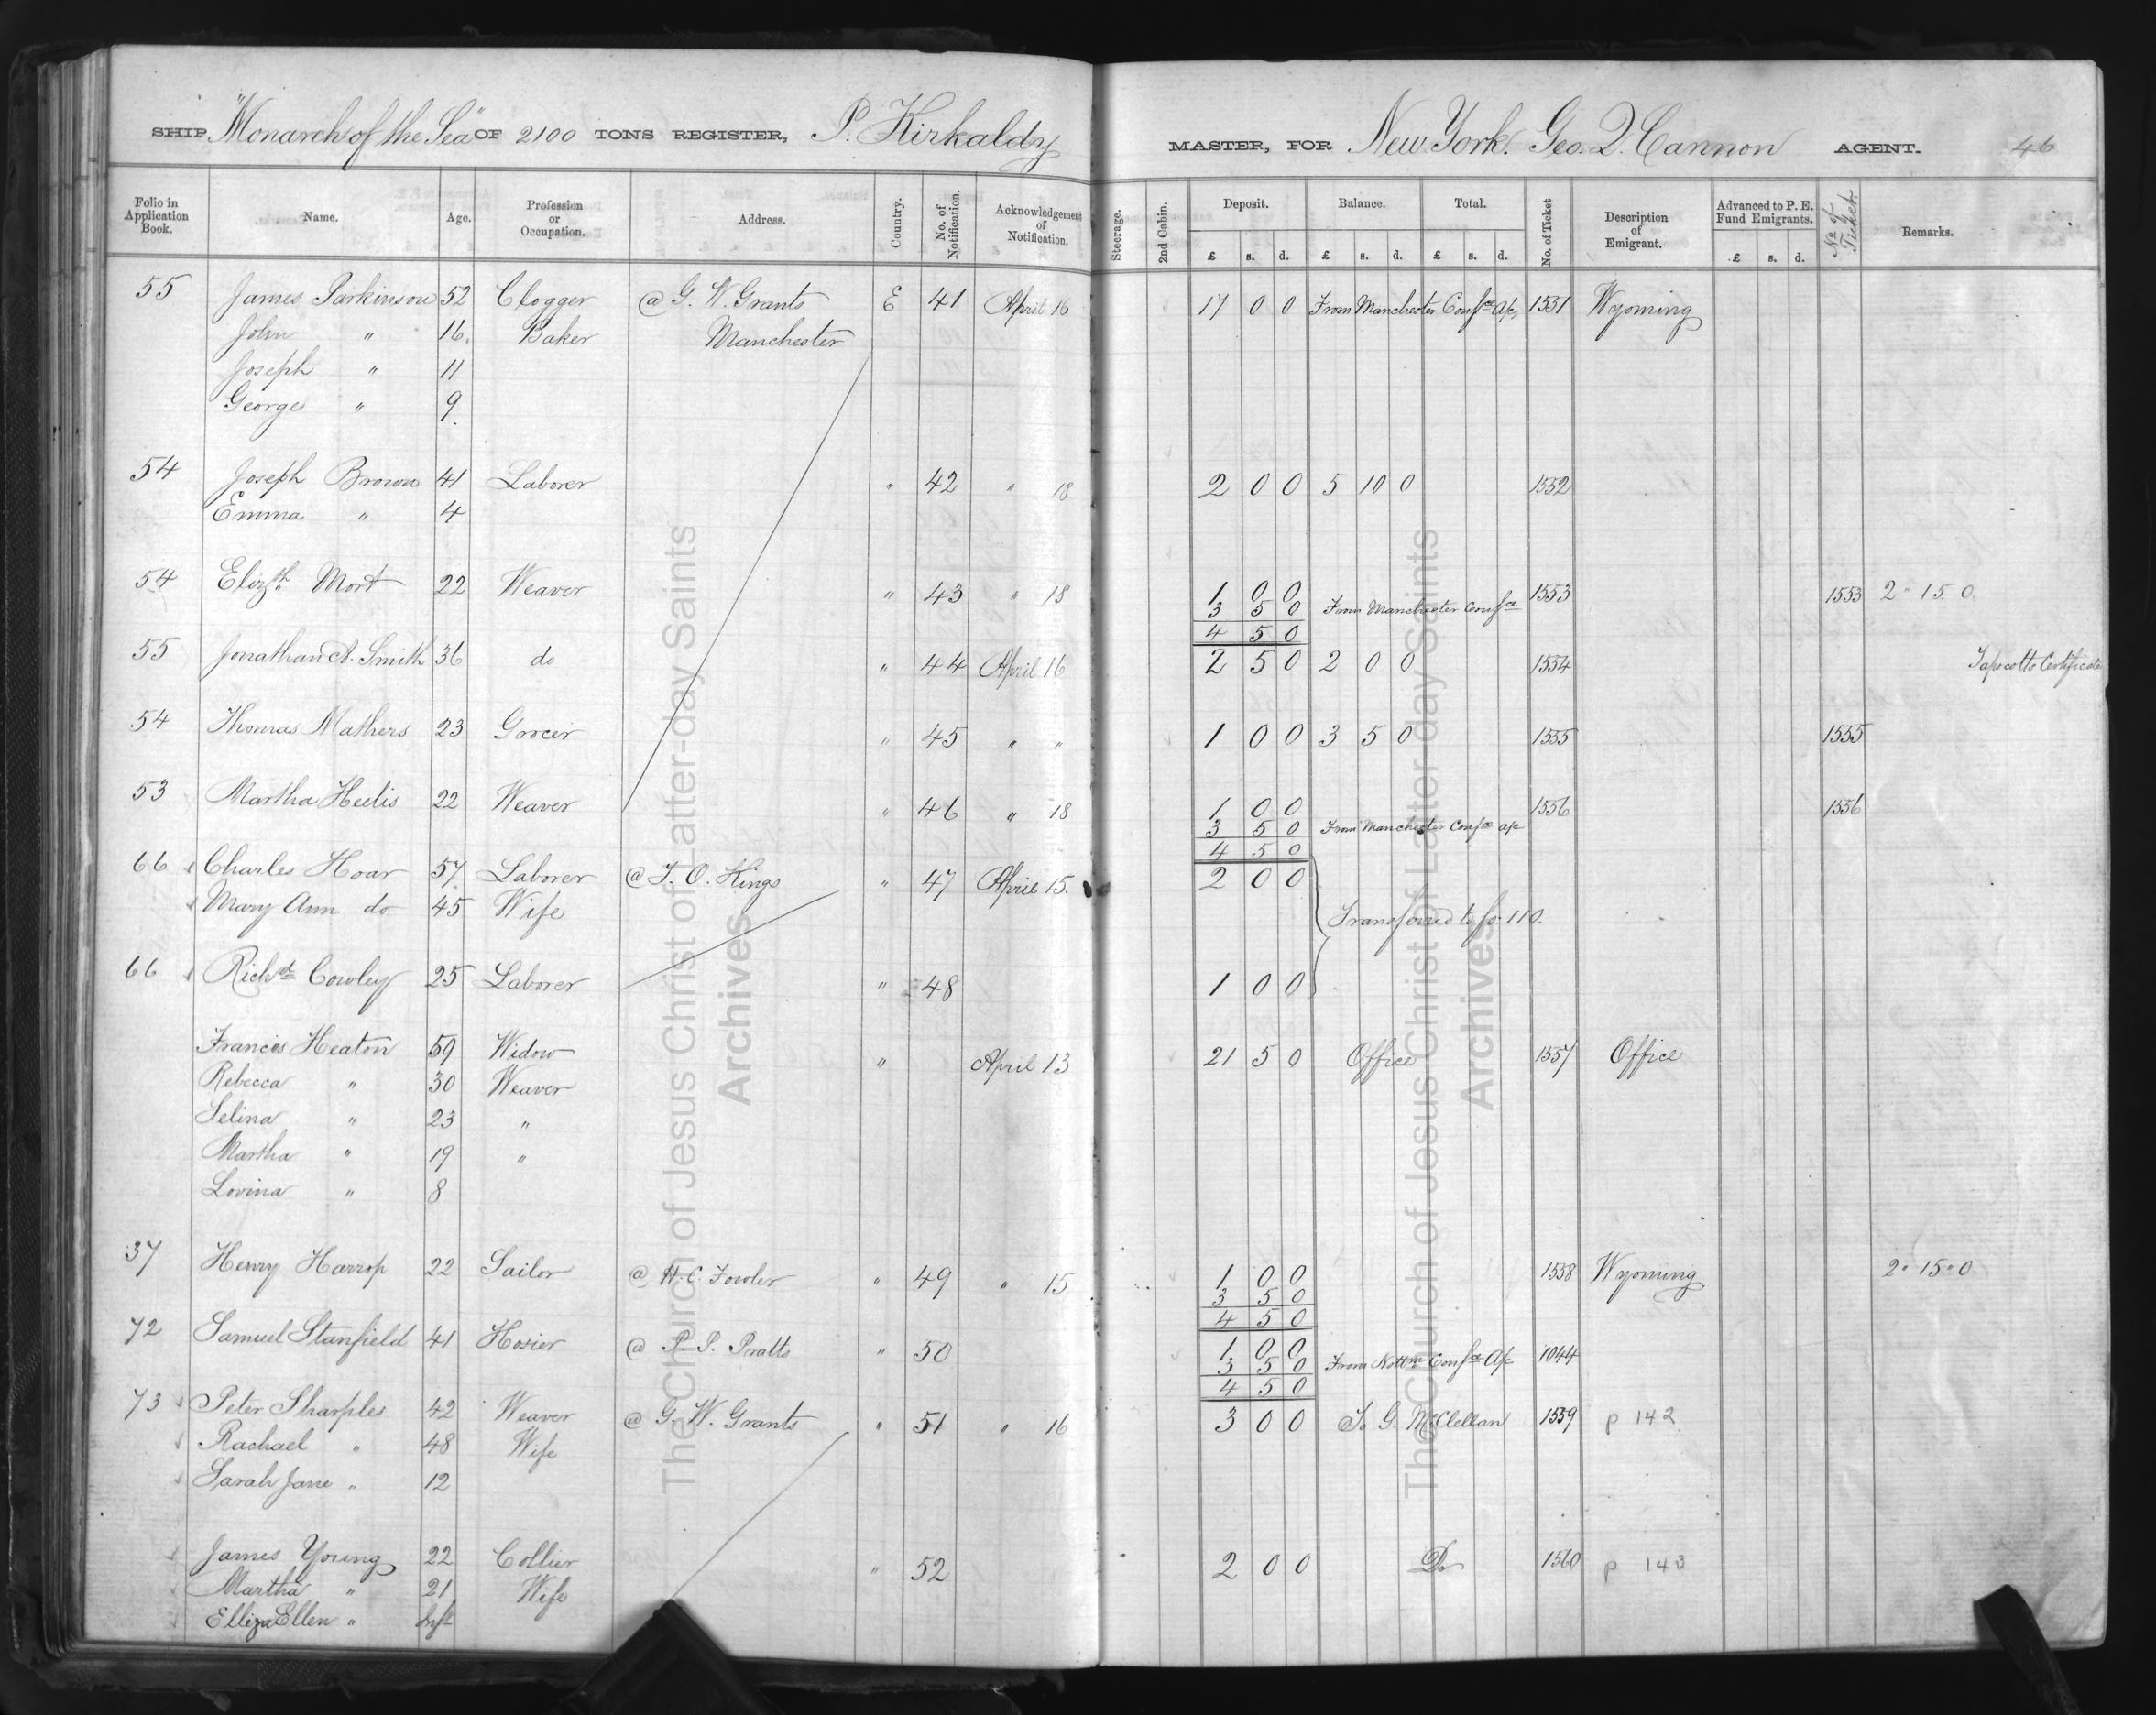 SHIP "Monarch of the Sea" OF 2100 TONS REGISTER, P. Kirkaldy MASTER, FOR New York. Geo. Q. Cannon AGENT. 46
Folio in Application Book. Name. Age. Profession or Occupation. Address. Country. No. of Notification. Acknowledgement of Notification. Steerage. 2nd Cabin. Deposit. Balance. Total. No. of Ticket Description of Emigrant. Advanced to P. E. Fund Emigrants. No. of Ticket. Remarks.
£ s. d. £ s. d. £ s. d. £ s. d.
55 James Parkinson 52 Clogger @ G. W. Grants E 41 April 16 17 0 0 From Manchester Confce a/c 1551 Wyoming
John " 16. Baker Manchester
Joseph " 11
George " 9
54 Joseph Brown 41 Laborer " 42 " 18 2 0 0 5 10 0 1552
Emma " 4
54 Elizth Mort 22 Weaver " 43 " 18 1 0 0 1553 1553 2 " 15. 0.
3 5 0 From Manchester Confce
4 5 0
55 Jonathan A. Smith 36 do " 44 April 16 2 5 0 2 0 0 1554 Tapscotts Certificate
54 Thomas Mathers 23 Grocer " 45 " " 1 0 0 3 5 0 1555 1555
53 Martha Heelis 22 Weaver " 46 " 18 1 0 0 1556 1556
3 5 0 From Manchester Confce a/c
4 5 0
66 Charles Hoar 57 Laborer @ T. O. Kings " 47 April 15. 2 0 0
Mary Ann do 45 Wife Transferred to fo: 110.
66 Richd Cowley 25 Laborer " 48 1 0 0
Frances Heaton 59 Widow " April 13 21 5 0 Office 1557 Office
Rebecca " 30 Weaver
Selina " 23 "
Martha " 19 "
Lovina " 8
37 Henry Harrop 22 Sailor @ H. C. Fowler " 49 " 15 1 0 0 1558 Wyoming 2 " 15 " 0
3 5 0
4 5 0
72 Samuel Stanfield 41 Hosier @ P. P. Pratts " 50 1 0 0 1044
3 5 0 From Nottm Confce a/c
4 5 0
73 Peter Sharples 42 Weaver @ G. W. Grants " 51 " 16 3 0 0 To G. McClellan 1559 p 142
Rachael " 48 Wife
Sarah Jane " 12
James Young 22 Collier " 52 2 0 0 Do 1560 p 143
Martha " 21 Wife
Elliza Ellen " Inft
The Church of Jesus Christ of Latter-day Saints
Archives
The Church of Jesus Christ of Latter-day Saints
Archives